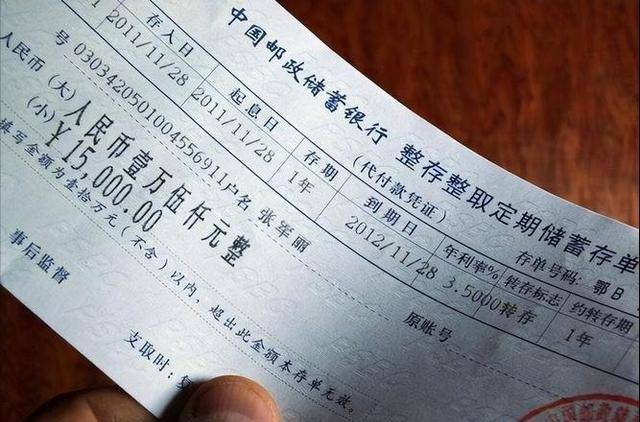 中国邮政储蓄银行 整存整取定期储蓄存单
(代付款凭证)
存单号码: 鄂B
号 03034205010045569 11户名 张军丽
原账号
人民币(大) 人民币壹万伍仟元整
(小) ¥15,000.00
存入日 起息日 存期 到期日 年利率% 转存标志 约转存期
2011/11/28 2011/11/28 1年 2012/11/28 3.5000 转存 1年
填写金额为壹拾万元(不含)以内,超出此金额本存单无效。
事后监督
支取时: